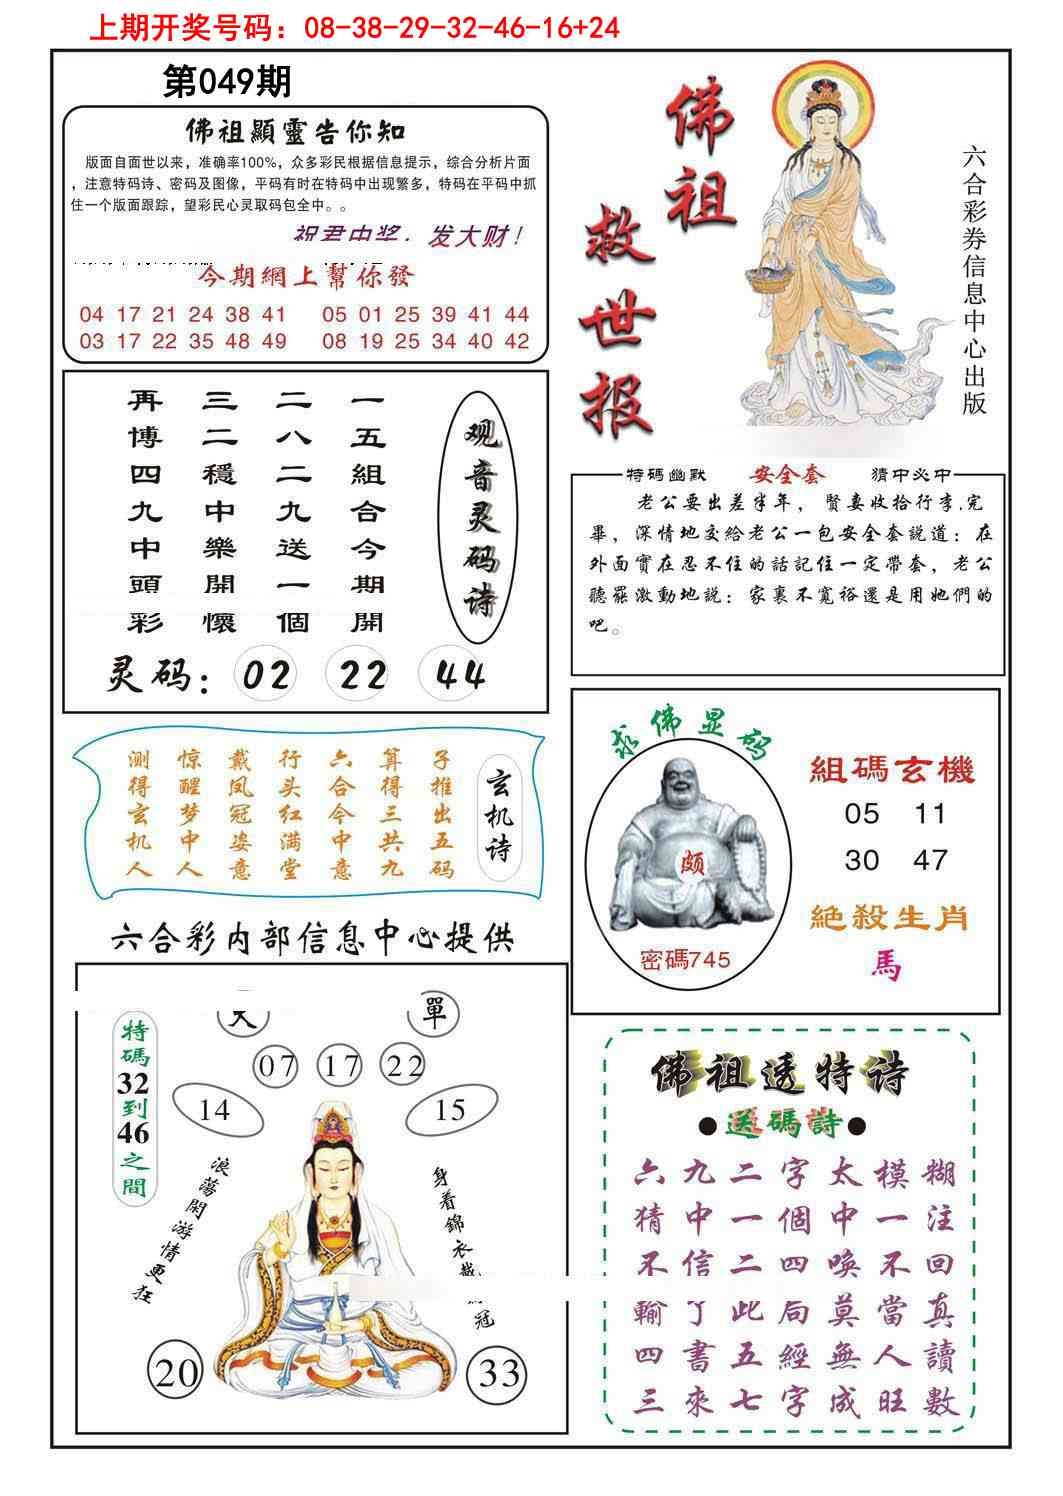 上期开奖号码：08-38-29-32-46-16+24
第049期
佛祖顯靈告你知
版面自面世以来，准确率100%，众多彩民根据信息提示，综合分析片面
，注意特码诗、密码及图像，平码有时在特码中出现繁多，特码在平码中抓
住一个版面跟踪，望彩民心灵取码包全中。。
祝君中奖，发大财！
今期網上幫你發
04 17 21 24 38 41 05 01 25 39 41 44
03 17 22 35 48 49 08 19 25 34 40 42
佛祖
救世报
六合彩券信息中心出版
观音灵码诗
一五組合今期開
二八二九送一個
三二穩中樂開懷
再博四九中頭彩
灵码：02 22 44
特碼幽默 安全套 猜中必中
老公要出差半年，賢妻收拾行李.完
畢，深情地交給老公一包安全套説道：在
外面實在忍不住的話記住一定帶套，老公
聽罷激動地説：家裏不寬裕還是用她們的
吧。
玄机诗
子推出五码
算得三共九
六合今中意
行头红满堂
戴凤冠姿意
惊醒梦中人
测得玄机人
求佛显码
颇
密碼745
組碼玄機
05 11
30 47
絕殺生肖
馬
六合彩内部信息中心提供
單
07 17 22
14 15
特碼32到46之間
浪蕩閑游情更狂
身着錦衣戴 冠
20 33
佛祖透特诗
●送碼詩●
六九二字太模糊
猜中一個中一注
不信二四唤不回
輸了此局莫當真
四書五經無人讀
三來七字成旺數